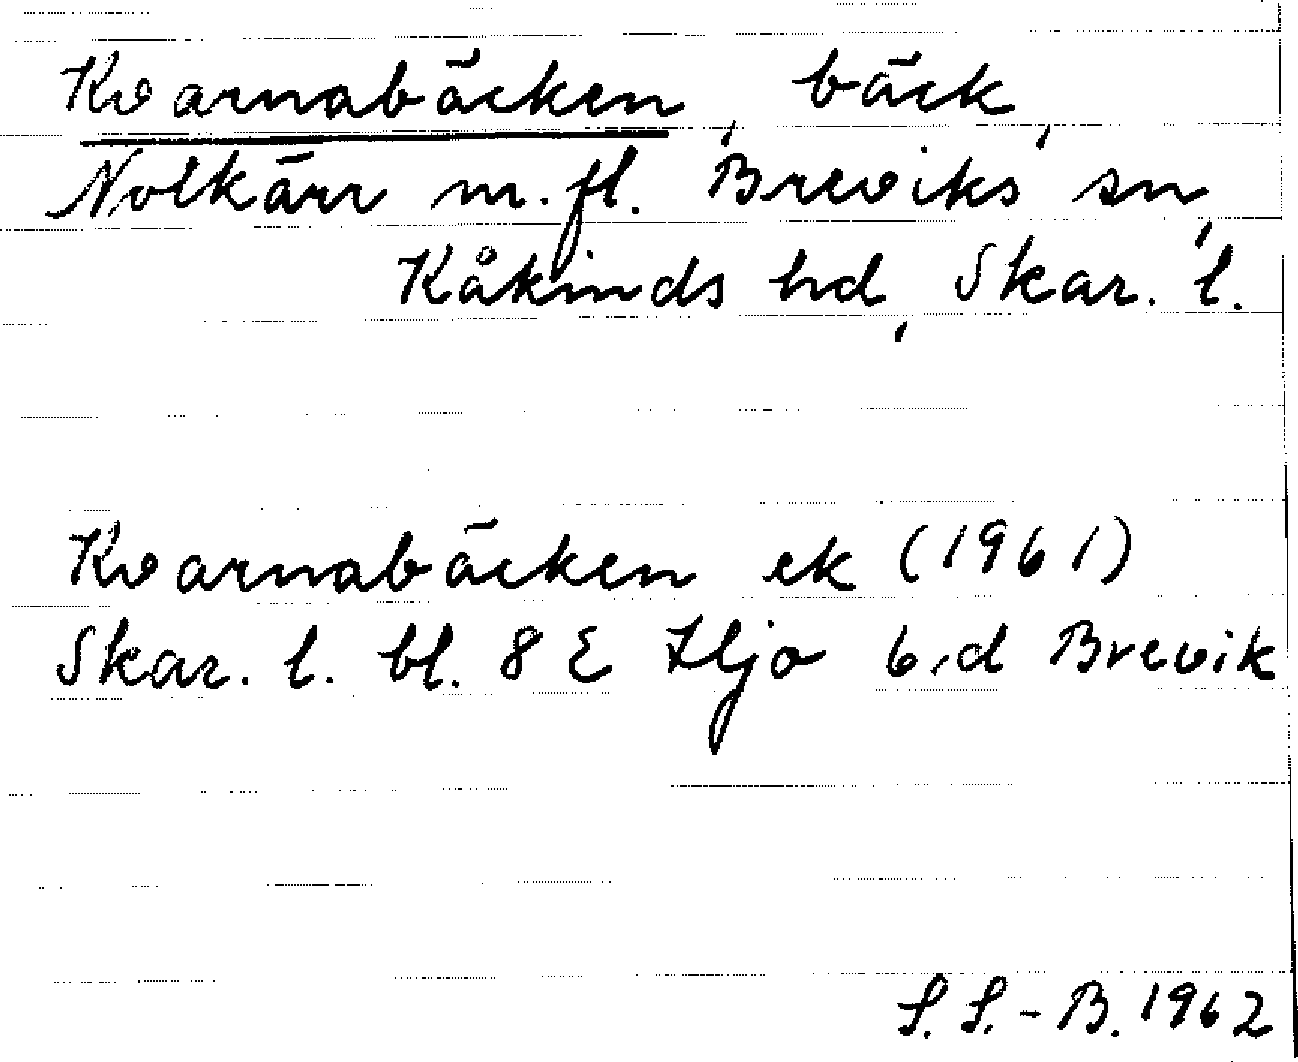 Kvarnabäcken, bäck,
Nolkärr m.fl. Breviks sn,
Kåkinds hd, Skar. l.
Kvarnabäcken ek (1961)
Skar. l. bl. 8 E Hjo 6,d Brevik
S. S.-B. 1962